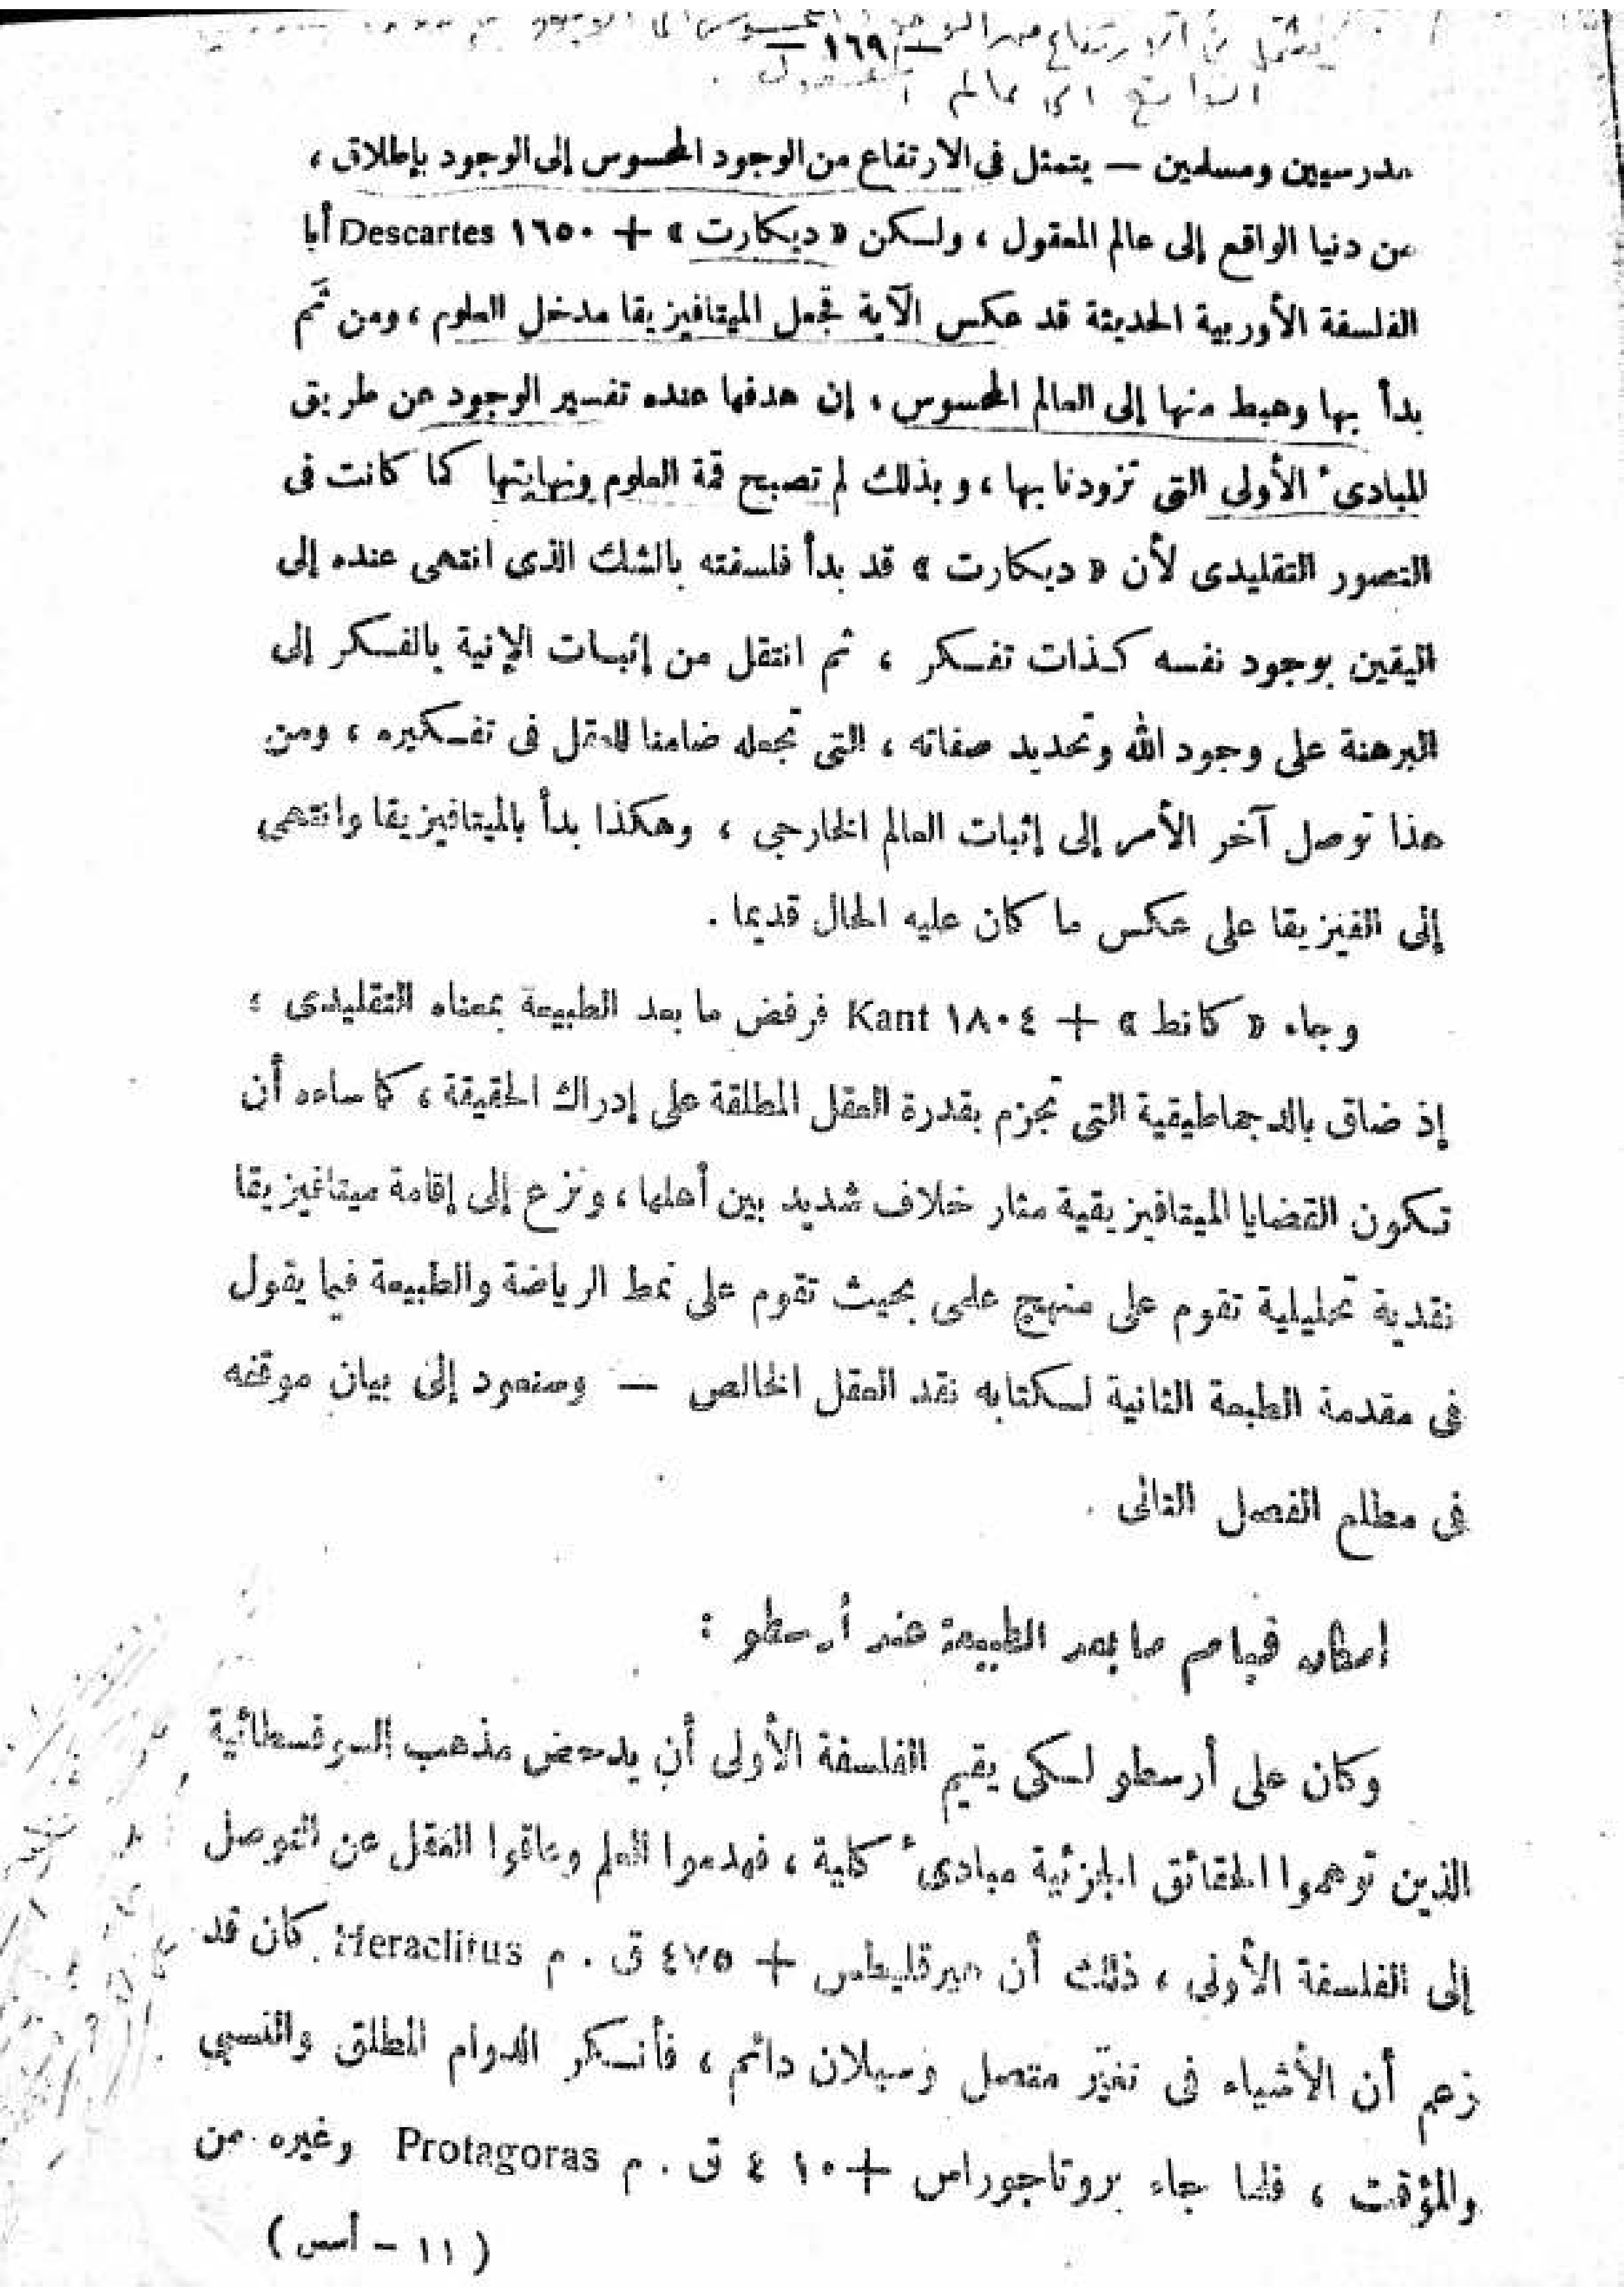 يتمثل في الارتفاع من
— ١٦٩ —
الواقع الى عالم
مدرسيين ومسلمين — يتمثل فى الارتفاع من الوجود المحسوس إلى الوجود بإطلاق ،
من دنيا الواقع إلى عالم المعقول ، ولكن « ديكارت » + ١٦٥٠ Descartes أبا
الفلسفة الأوربية الحديثة قد عكس الآية فجعل الميتافيزيقا مدخل العلوم ، ومن ثَم
بدأ بها وهبط منها إلى العالم المحسوس ، إن هدفها عنده تفسير الوجود عن طريق
المبادئ الأولى التى تزودنا بها ، وبذلك لم تصبح قمة العلوم ونهايتها كما كانت فى
التصور التقليدى لأن « ديكارت » قد بدأ فلسفته بالشك الذى انتهى عنده إلى
اليقين بوجود نفسه كذات تفكر ، ثم انتقل من إثبات الإنية بالفكر إلى
البرهنة على وجود الله وتحديد صفاته ، التى تجعله ضامنا للعقل فى تفكيره ، ومن
هذا توصل آخر الأمر إلى إثبات العالم الخارجى ، وهكذا بدأ بالميتافيزيقا وانتهى
إلى الفيزيقا على عكس ما كان عليه الحال قديما .
وجاء « كانط » + ١٨٠٤ Kant فرفض ما بعد الطبيعة بمعناه التقليدى ؛
إذ ضاق بالدجماطيقية التى تجزم بقدرة العقل المطلقة على إدراك الحقيقة ، كما ساءه أن
تكون القضايا الميتافيزيقية مثار خلاف شديد بين أهلها ، ونزع إلى إقامة ميتافيزيقا
نقدية تحليلية تقوم على منهج علمى بحيث تقوم على نمط الرياضة والطبيعة فيما يقول
فى مقدمة الطبعة الثانية لكتابه نقد العقل الخالص — وسنعود إلى بيان موقفه
فى مطلع الفصل الثانى .
إمكان قيام ما بعد الطبيعة عند أرسطو :
وكان على أرسطو لكى يقيم الفلسفة الأولى أن يدحض مذهب السوفسطائية
الذين توهموا الحقائق الجزئية مبادئ كلية ، فهدموا العلم وعاقوا العقل عن التوصل
إلى الفلسفة الأولى ، ذلك أن هيرقليطس + ٤٧٥ ق . م Heraclitus كان قد
زعم أن الأشياء فى تغيّر متصل وسيلان دائم ، فأنكر الدوام المطلق والنسبى
والمؤقت ، فلما جاء بروتاجوراس + ٤١٠ ق . م Protagoras وغيره من
( ١١ — أسس )